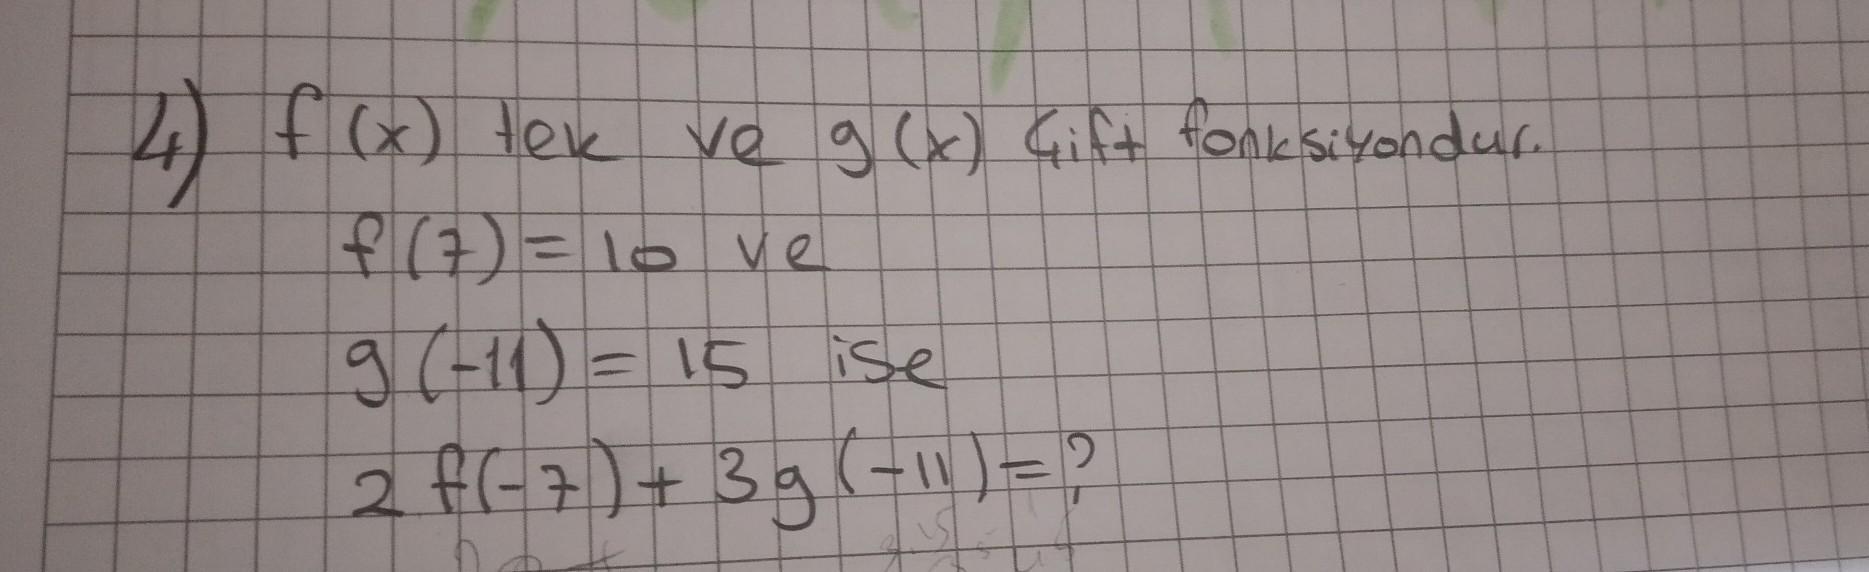 4) f(x) tek ve g(x) çift fonksiyondur.
f(7) = 10 ve
g(-11) = 15 ise
2 f(-7) + 3g(-11) = ?